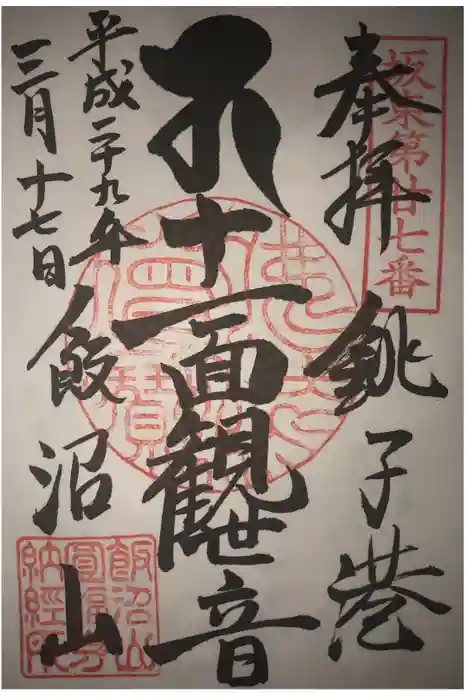 坂東第廿七番
奉拝 銚子港
十一面観世音
飯沼山
平成二十九年
三月十七日
飯沼山
圓福寺
納經